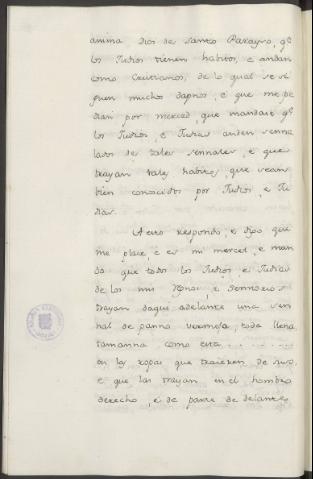 anima dios de santo Parayso, q̃
los Judios tienen habitos, e andan
como Cristianos, de lo qual se si
guen muchos dapnos, e que me pe
dian por merced, que mandase q̃
los Judios, e Judias anden senna
lados de tales sennales, e que
trayan tales habitos, que sean
bien conocidos por Judios, e Ju
dias.
A esto respondo, e digo que
me place, e es mi merced, e man
do que todos los Judios, e Judias
de los mis Regnos, e sennorios
trayan daqui adelante una sen
nal de panno vermeja, toda llena,
tamanna como esta . . . . . . . .
en las ropas que traxeren de suso,
e que las trayan en el hombro
derecho, e de parte de delante,